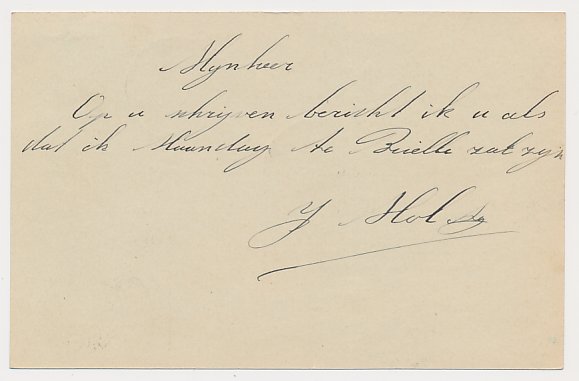 Mynheer
Op u schrijven bericht ik u als
dat ik Maandag te Brielle zal zyn
J Hol